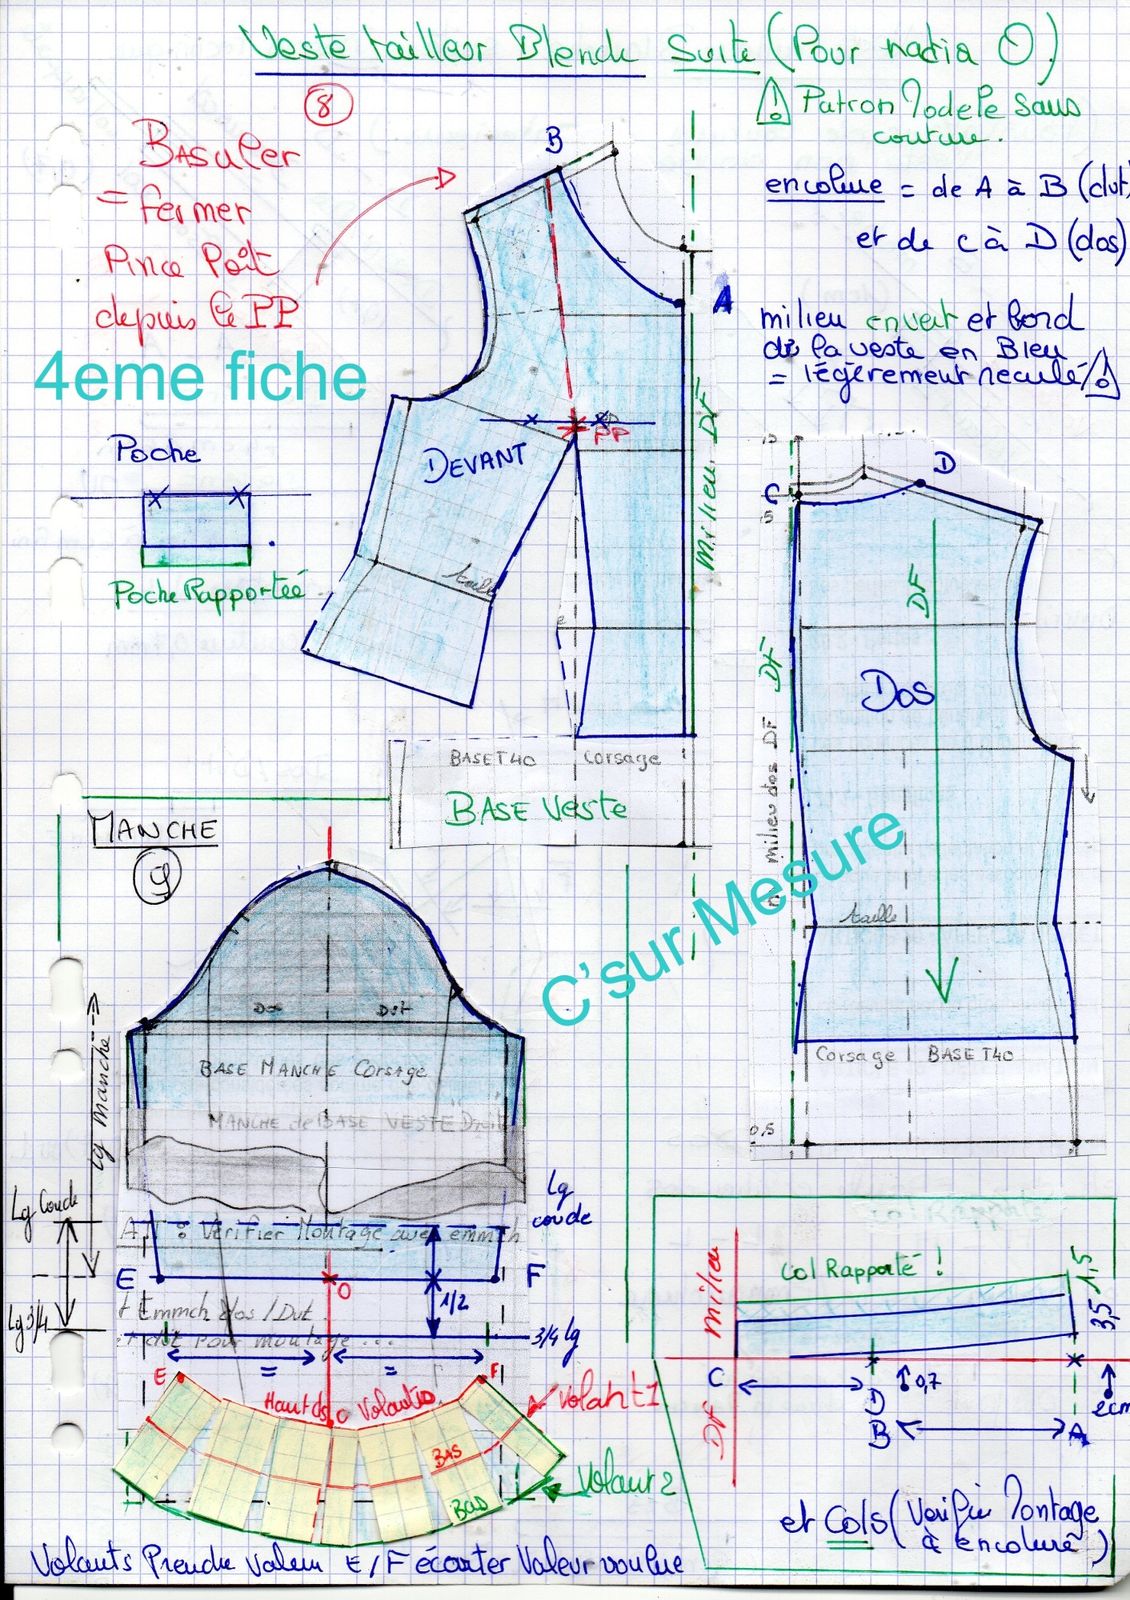 Veste tailleur Blende Suite (Pour nadia O)
8
⚠ Patron Modele sans
couture.
Basculer
= fermer
Pince Poit
depuis le PP
encolure = de A à B (dvt)
et de C à D (dos)
milieu en vert et bord
de la veste en Bleu
= légèrement reculé ⚠
4eme fiche
B
A
PP
DEVANT
taille
Milieu DF
Poche
Poche Rapportée
BASE T40 Corsage
BASE Veste
C
D
DF
Dos
DF
milieu dos DF
taille
Corsage BASE T40
0,5
C'sur Mesure
MANCHE
9
Dos Dvt
BASE MANCHE Corsage
MANCHE de BASE VESTE Droite
lg manche
Lg Coude
Lg coude
Vérifier Montage avec emmch
E
O
F
1/2
Lg 3/4
Emmch dos / Dvt
pour montage ...
3/4 lg
= =
E
F
Haut des Volants
Volant 1
BAS
BAS
Volant 2
Volants Prendre Valeur E/F écarter Valeur voulue
Col Rapporté !
milieu
DF
1,5
3,5
C
D
0,7
2cm
B
A
et Cols (Verifier Montage
à encolure)